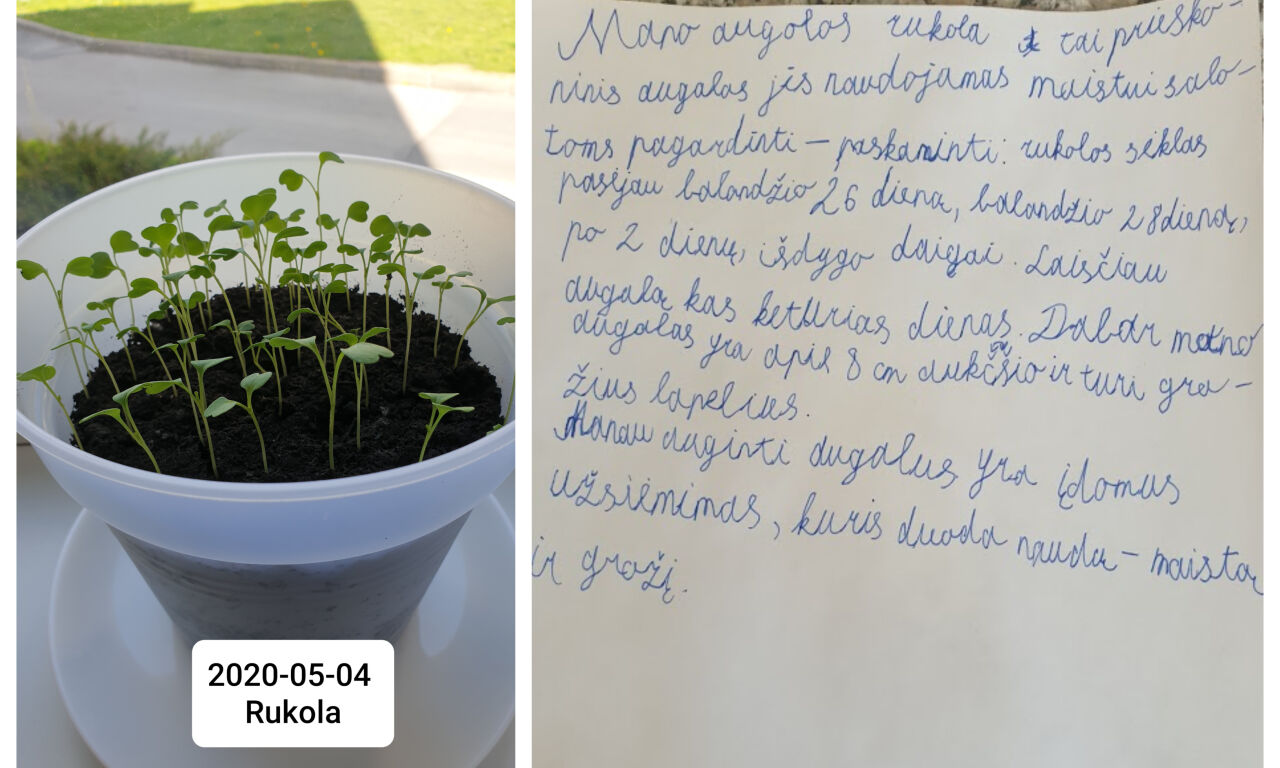 2020-05-04
Rukola
Mano augolos rukola tai priesko-
ninis augalas jis naudojamas maistui salo-
toms pagardinti – paskaninti: rukolos sėklas
pasėjau balandžio 26 dieną, balandžio 28 dieną,
po 2 dienų, išdygo daigai. Laisčiau
augalą kas keturias dienas. Dabar mano
augalas yra apie 8 cm aukščio ir turi gra-
žius lapelius.
Manau auginti augalus yra įdomus
užsiėmimas, kuris duoda nauda – maistą
ir grožį.